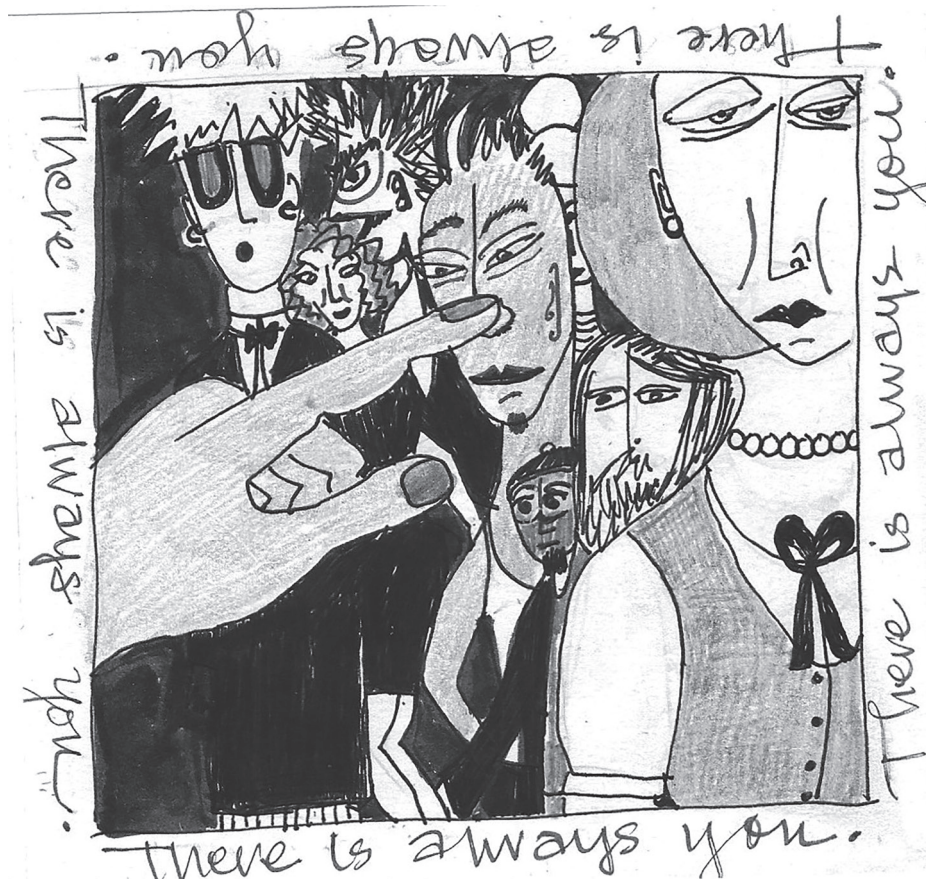 There is always you.
There is always you.
There is always you.
There is always you.